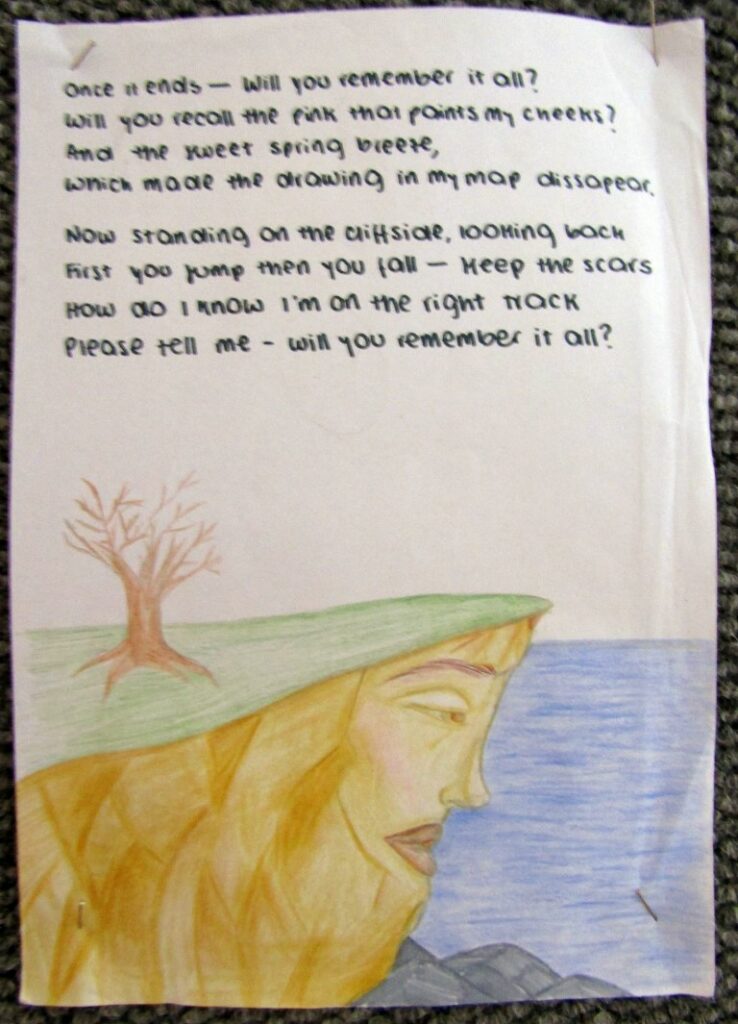 Once it ends — Will you remember it all?
Will you recall the pink that paints my cheeks?
And the sweet spring breeze,
which made the drawing in my map dissapear.
Now standing on the cliffside, looking back
First you jump then you fall — Keep the scars
How do I know I'm on the right track
Please tell me - will you remember it all?